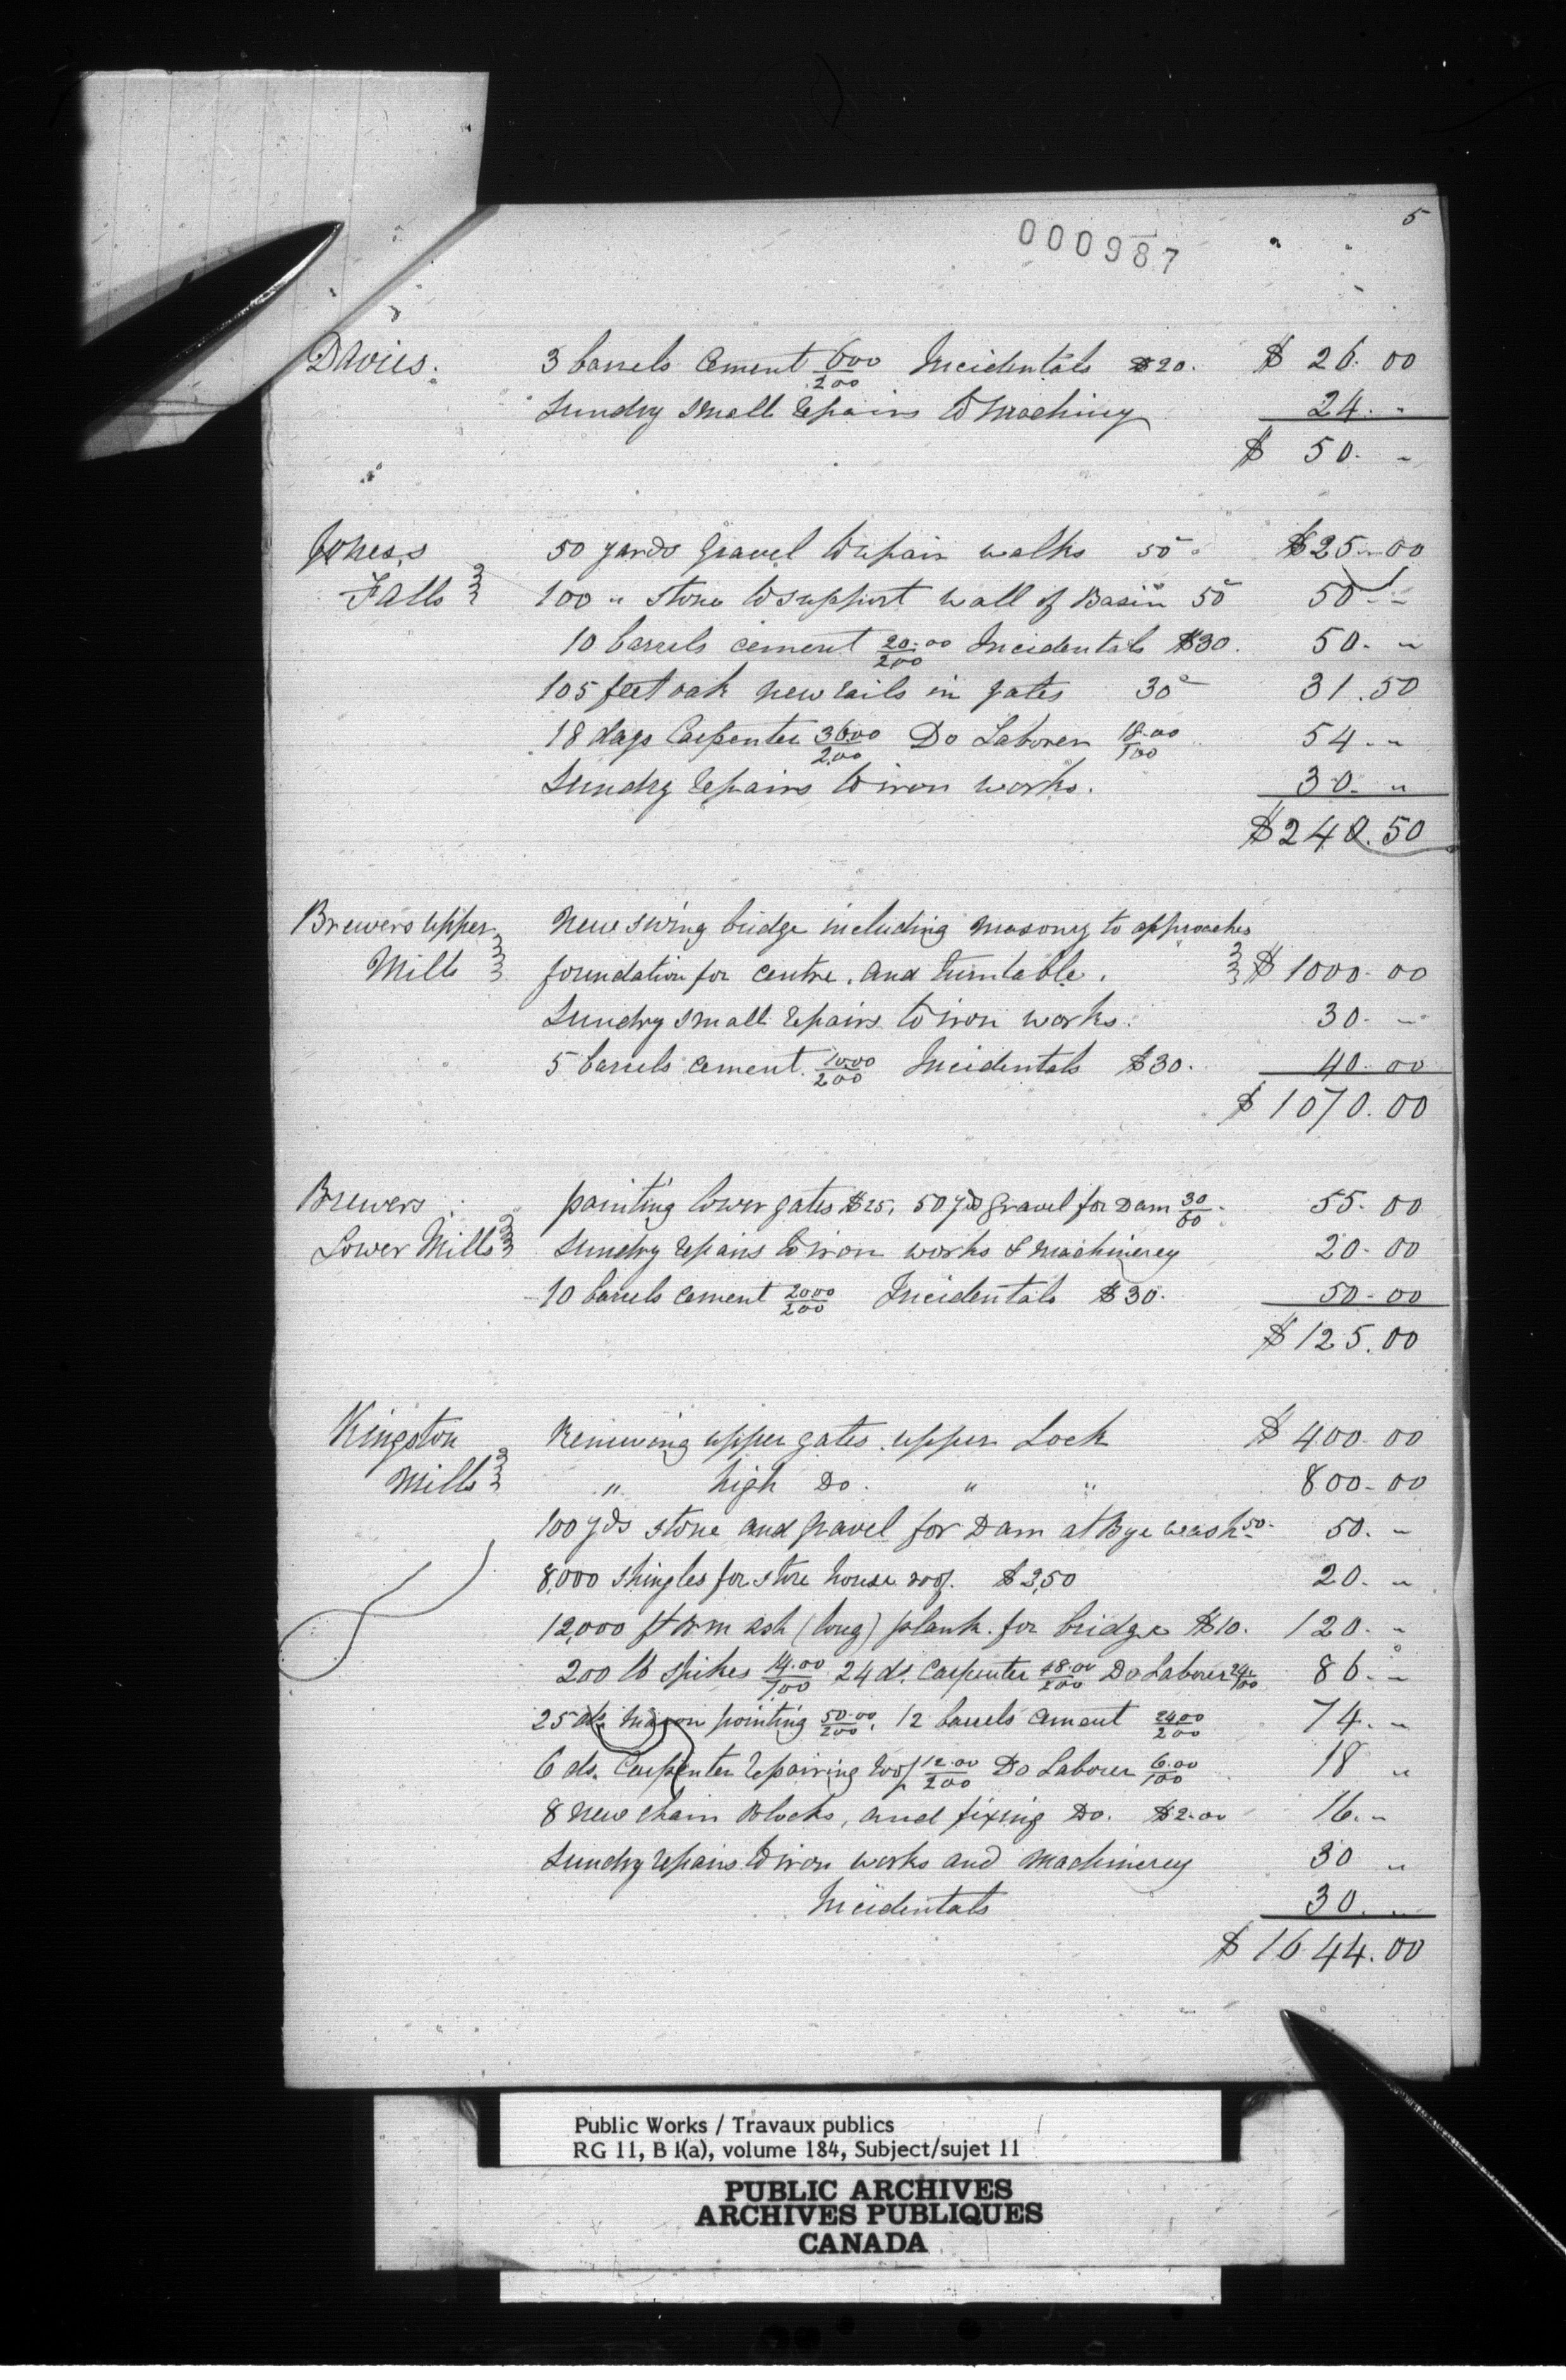 5
000987
Davies. 3 barrels Cement 600/200 Incidentals $20. $ 26.00
Sundry small repairs to machiny 24. "
$ 50. "
Jones,s 50 yards gravel to repair walks 50c $25.00
Falls 100 " stone to support wall of Basin 50c 50. "
10 barrels cement 20.00/200 Incidentals $30. 50. "
105 feet oak new rails in gates 30c 31.50
18 days Carpenter 3600/200 Do Laborer 18.00/100 54. "
Sundry repairs to iron works. 30. "
$240.50
Brewers upper New swing bridge including masonry to approaches
Mills foundation for centre, and turntable. $ 1000.00
Sundry small repairs to iron works. 30. "
5 barrels cement 1000/200 Incidentals $30. 40.00
$ 1070.00
Brewers pointing lower gates $25, 50 yds gravel for Dam 30/60 55.00
Lower Mills Sundry repairs to iron works & machinerey 20.00
10 barrels cement 2000/200 Incidentals $30. 50.00
$ 125.00
Kingston Renewing upper gates upper Lock $ 400.00
Mills " high Do. " " 800.00
100 yds stone and gravel for Dam at Bye wash 50. 50. "
8,000 shingles for store house roof. $2,50 20. "
12,000 ft BM ash (long) plank for bridge $10. 120. "
200 lb spikes 14.00/700 24 ds. Carpenter 48.00/200 Do Laborer 24/100 86. "
25 ds. Mason pointing 50.00/200, 12 barrels cement 2400/200 74. "
6 ds. Carpenter repairing roof 12.00/200 Do Laborer 6.00/100 18 "
8 new chain Blocks, and fixing Do. $2.00 16. "
Sundry repairs to iron works and machinerey 30 "
Incidentals 30. "
$ 1644.00
Public Works / Travaux publics
RG 11, B 1(a), volume 184, Subject/sujet 11
PUBLIC ARCHIVES
ARCHIVES PUBLIQUES
CANADA